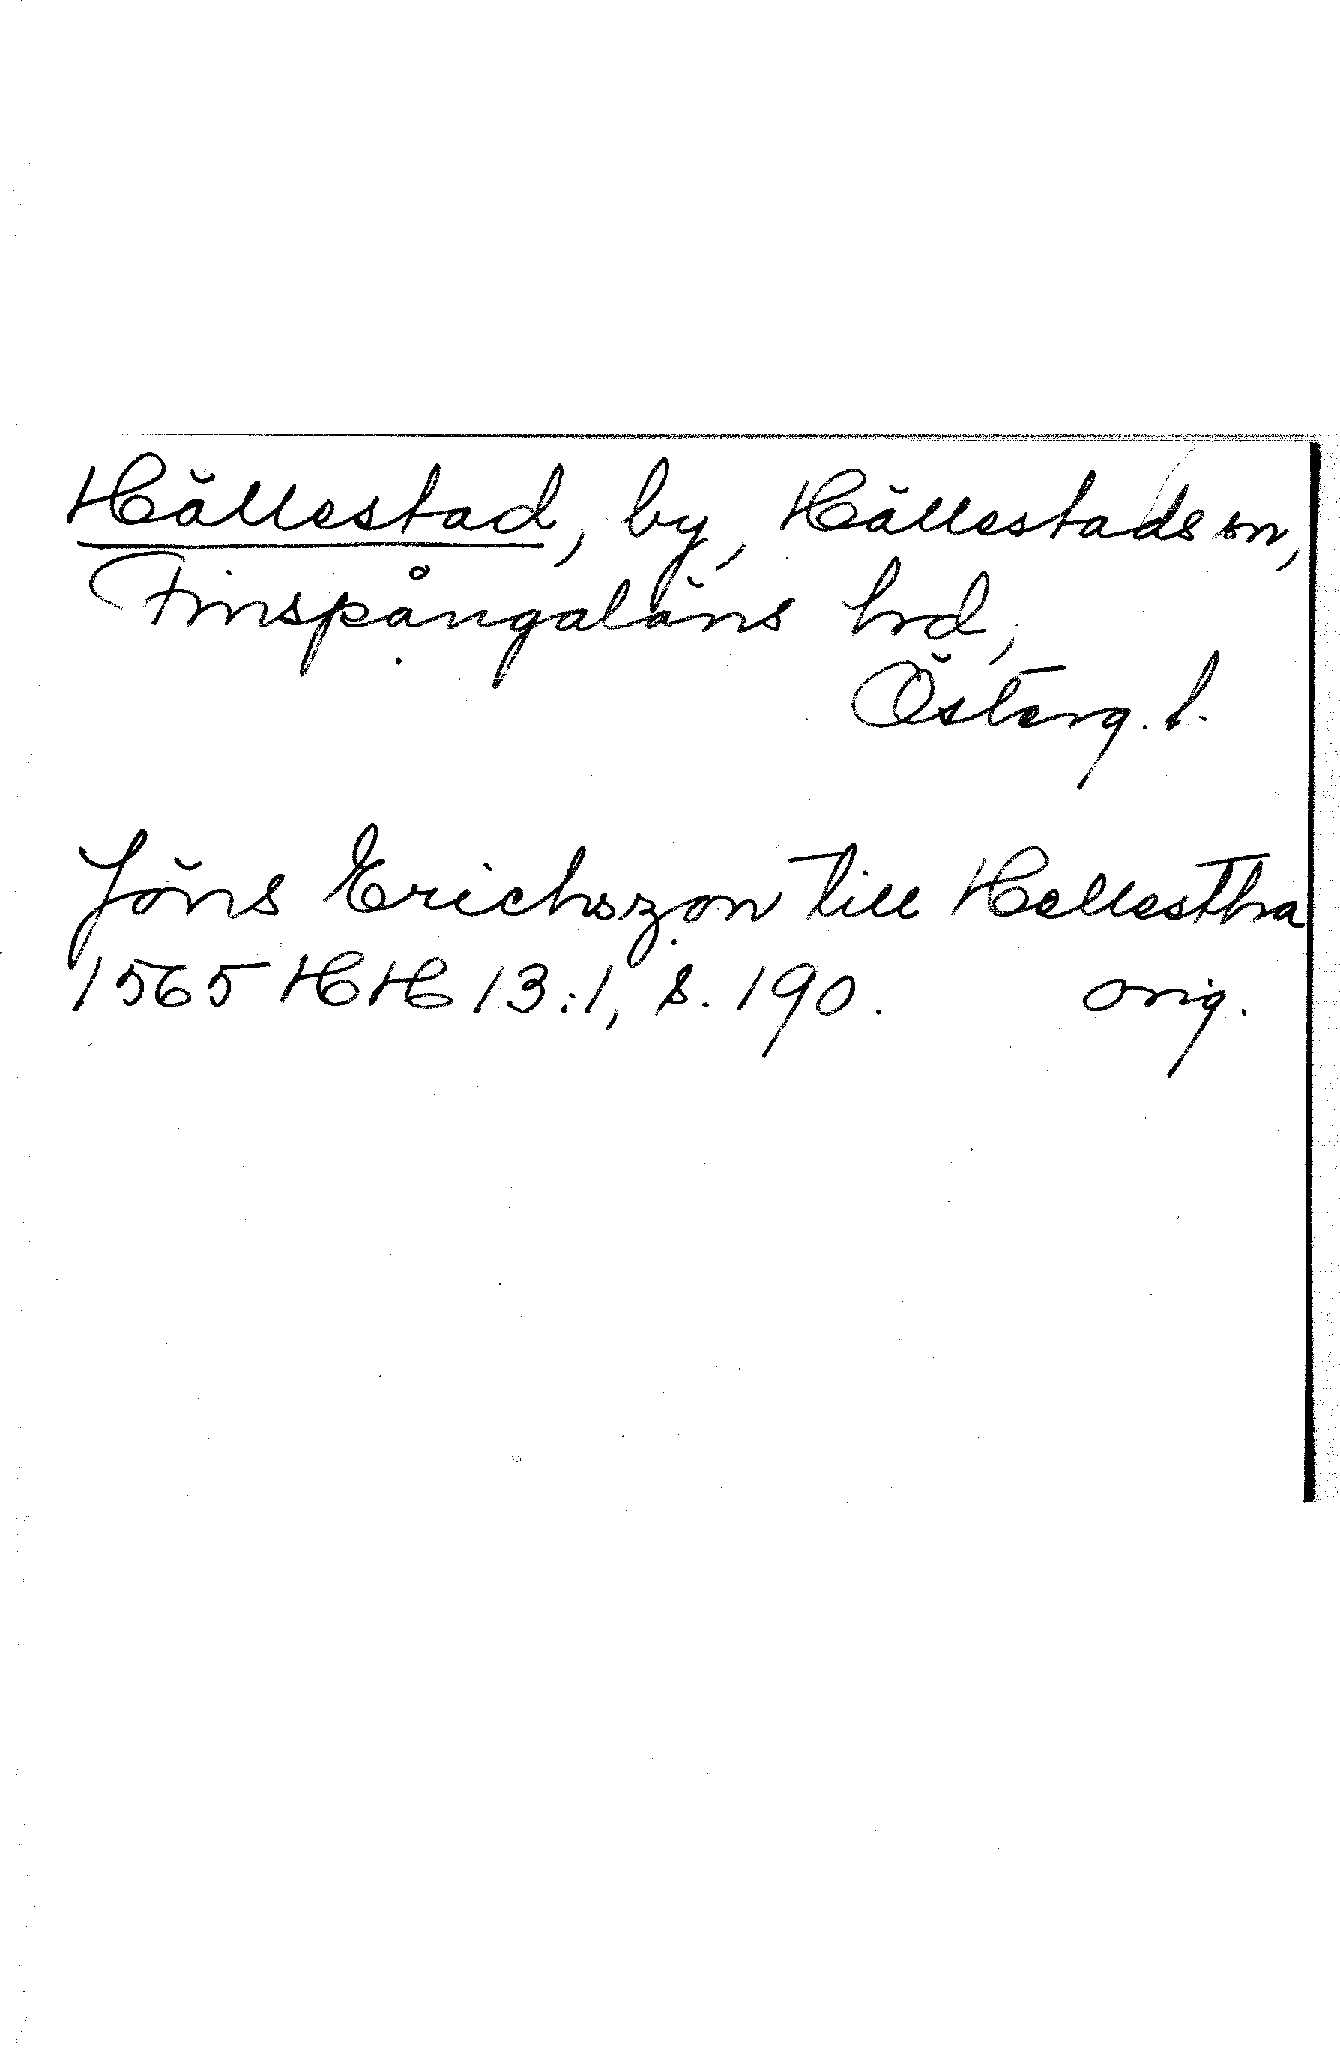 Hällestad, by, Hällestads sn,
Finspångaläns hrd,
Österg. l.
Jöns Erichszon till Hellestha
1565 HH 13:1, s. 190. orig.